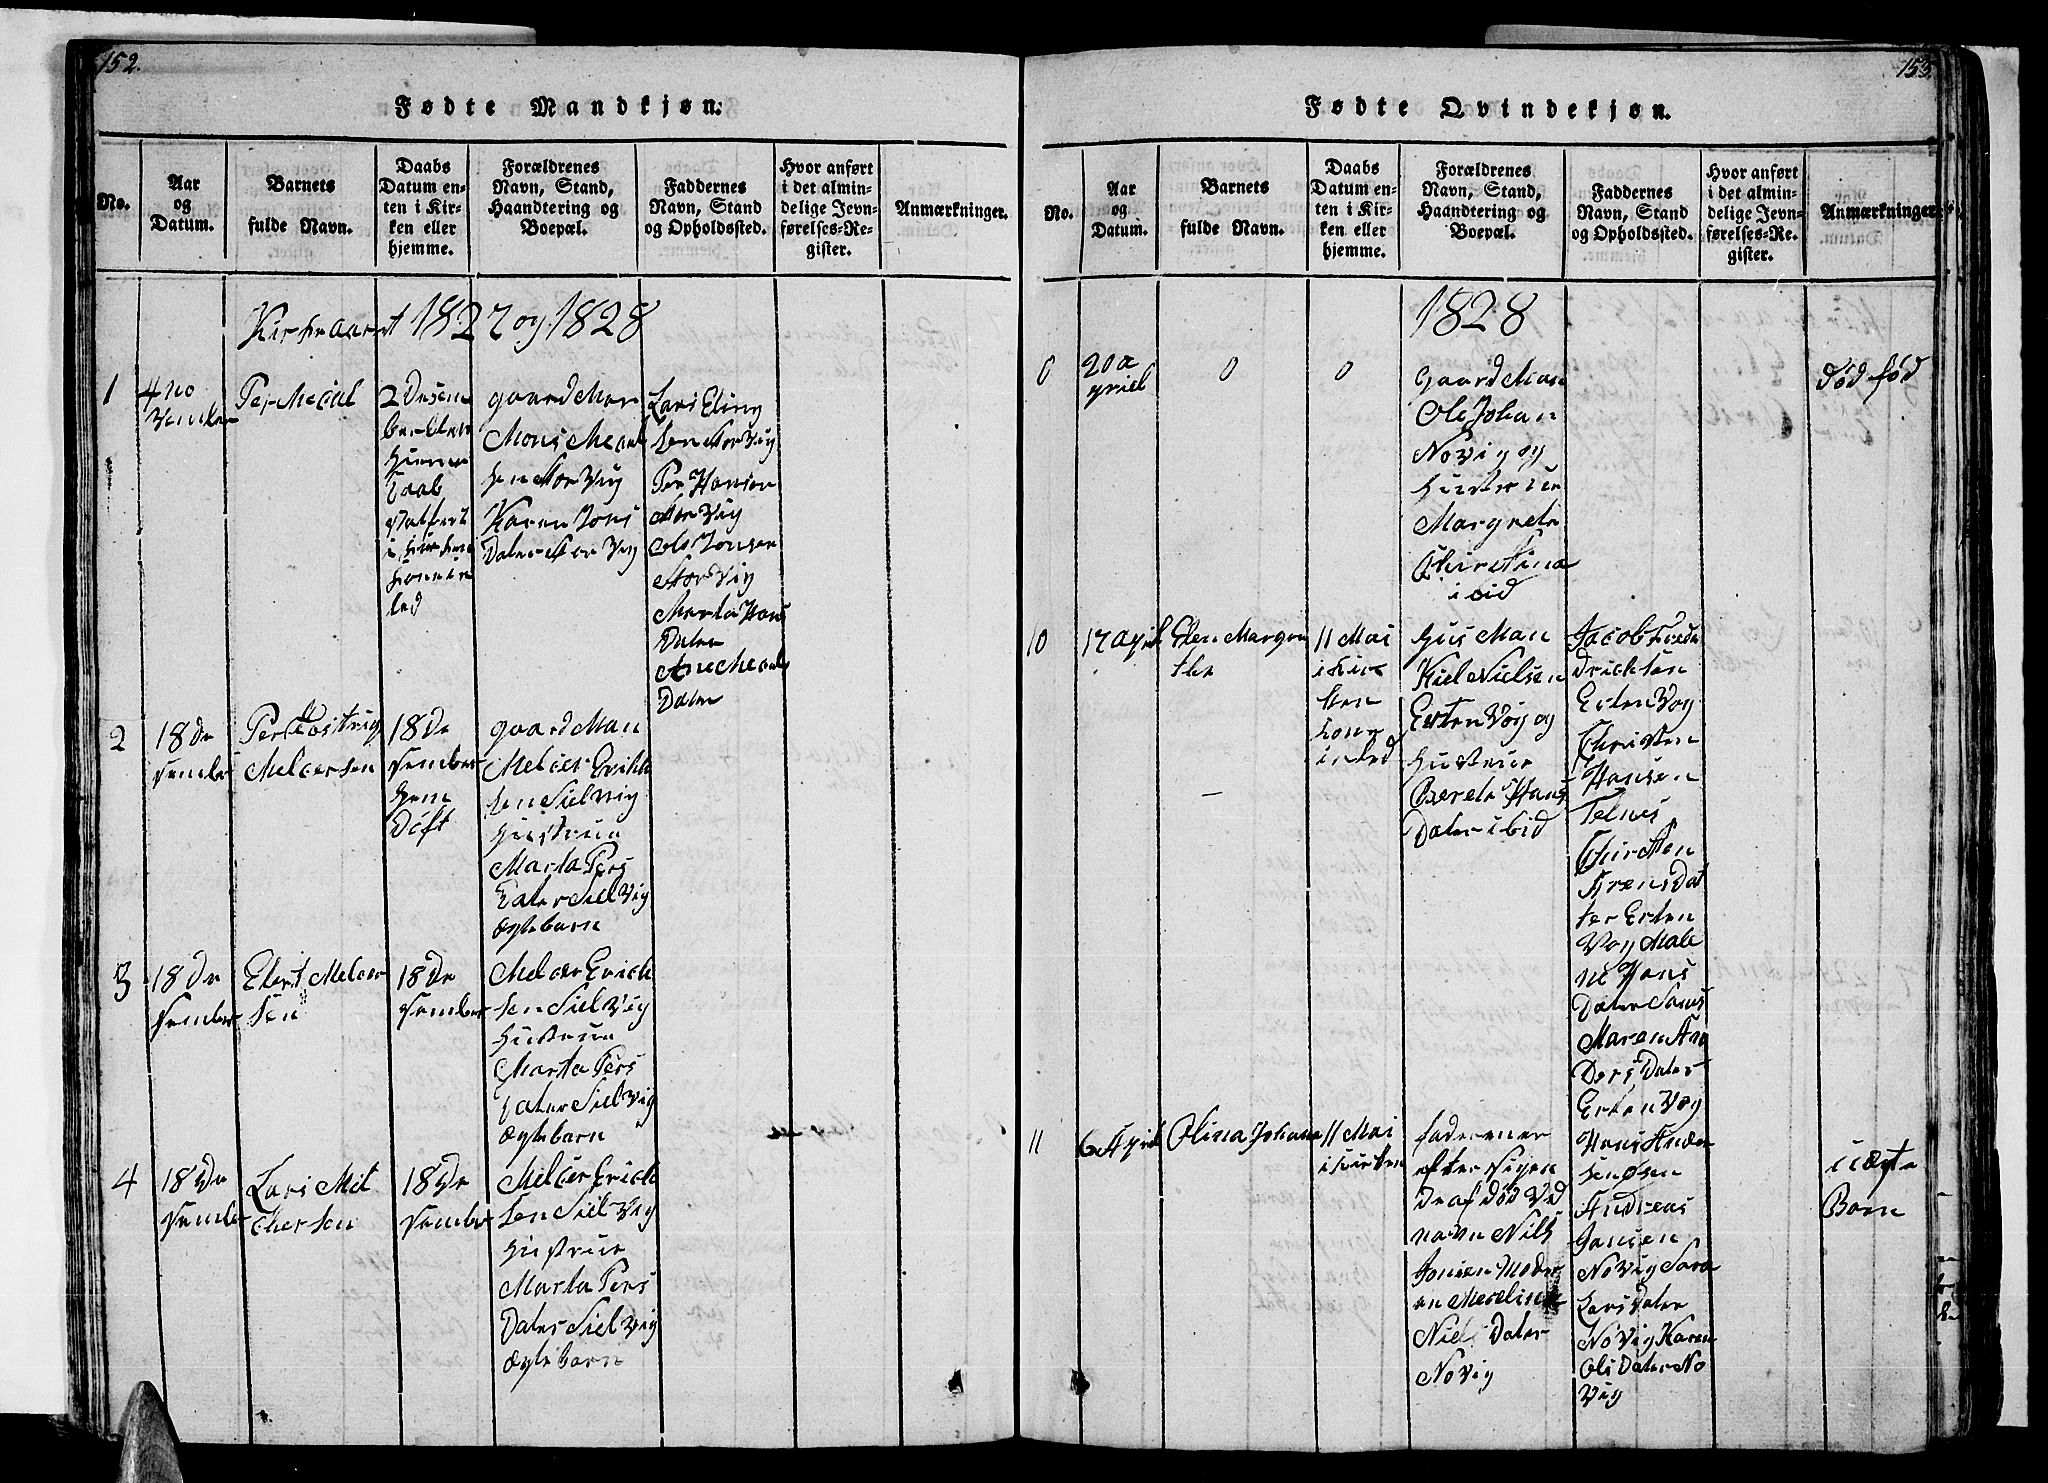 152.
Fødte Mandkjøn.
No.
Aar
og
Datum.
Barnets
fulde Navn.
Daabs
Datum en-
ten i Kir-
ken eller
hjemme.
Forældrenes
Navn, Stand,
Haandtering og
Boepæl.
Faddernes
Navn, Stand
og Opholdssted.
Hvor anført
i det almin-
delige Jevn-
førelses-Re-
gister.
Anmærkninger.
Kirkeaaret 1827 og 1828
1
4 No
vember
Per Meial
2 Desem
ber
hieme
Daab
i kirken
gaard Man
Mons
sen Stor Vig
Karen Jons
Dater Stor Vig
Lars Eling
sen Stor Vig
Per Hansen
Stor Vig
Ole Jonsen
Stor Vig
Marta Hans
Dater
Ane
Dater
2
18 De
sember
Per
Melcersen
18 De
sember
hem
Døft
gaard Man
Melcer Erich
sen Sielvig
Hustrue
Marta Pers
Dater Siel Vig
Ægte barn
3
18 De
sember
Elert Melcer
sen
18 De
sember
Melcer Erich
sen Siel Vig
Hustrue
Marta Pers
Dater Siel Vig
Ægte barn
4
18 De
sember
Lars Mel
chersen
18 De
sember
Melcer Erich
sen Siel Vig
Hustrue
Marta Pers
Dater Siel Vig
Ægte barn
153.
Fødte Qvindekjøn.
No.
Aar
og
Datum.
Barnets
fulde Navn.
Daabs
Datum en-
ten i Kir-
ken eller
hjemme.
Forældrenes
Navn, Stand,
Haandtering og
Boepæl.
Faddernes
Navn, Stand
og Opholdssted.
Hvor anført
i det almin-
delige Jevn-
førelses-Re-
gister.
Anmærkninger
1828
0
20 a
priel
0
0
Gaard Man
Ole Johan
Novig og
Hustrue
Margrete
Christina
ibid
død fød
10
17 April
Elen Margre
the
11 Mai
i Kir
ken
Hus Man
Kiel Nielsen
Erten Vog og
Hustrue
Berete Hans
Dater ibid
Jacob Frede
drichsen
Erten Vog
Christen
Hansen
Telnes
Chirsten
Arens Dat
ter Erten
Vog Male
ne Hans
Dater Sans
Maren An
Ders Dater
Erten Vog
11
6 April
Olina Johana
11 Mai
i Kirken
faderen er
efter
De af død Ved
navn Nils
Jonsen Moder
en Merelina
Niels Dater
Novig
Hans Ander
sen Øsen
Andreas
Jansen
Novig Sara
Lars Dater
Novig Karen
Ols Dater No
Vig
uægte
Barn